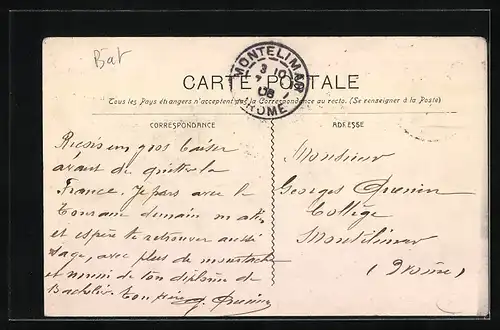 Bat
MONTELIMAR
3 10
08
DROME
CARTE POSTALE
Tous les Pays étrangers n'acceptent pas la Correspondance au recto. (Se renseigner à la Poste)
CORRESPONDANCE
Reçois un gros baiser
avant de quitter la
France. Je pars avec le
Touraine demain matin
et espère te retrouver aussi
sage, avec plus de moustache
et muni de ton diplôme de
Bachelier. Ton père
ADRESSE
Monsieur
Georges
Collège
Montélimar
(Drôme)